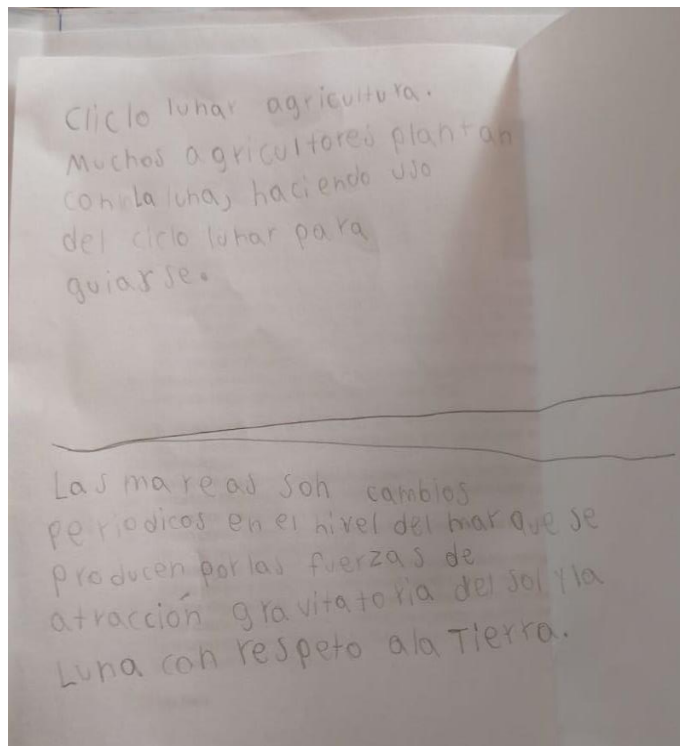 Cliclo lunar agricultura.
Muchos agricultores plantan
con la luna, haciendo uso
del ciclo lunar para
guiarse.
Las mareas son cambios
periodicos en el nivel del mar que se
producen por las fuerzas de
atracción gravitatoria del sol y la
Luna con respeto a la Tierra.